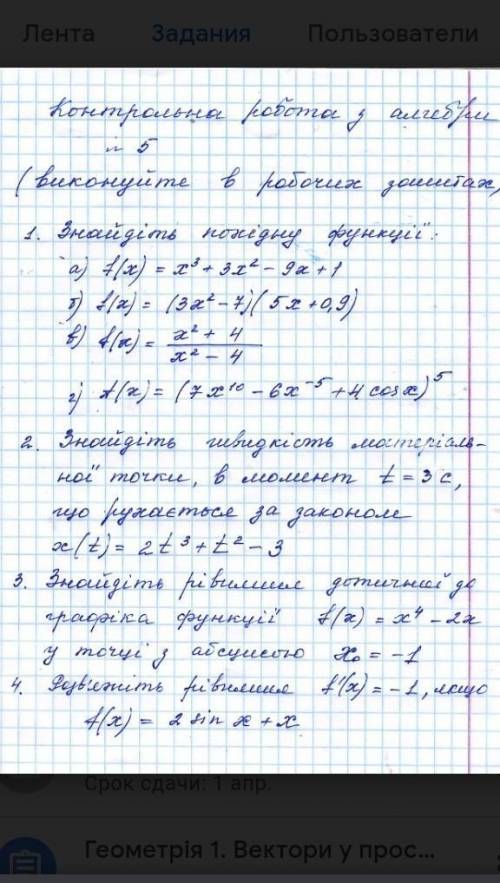 Лента Задания Пользователи
Контрольна робота з алгебри
№ 5
(виконуйте в робочих зошитах)
1. Знайдіть похідну функції:
а) f(x) = x³ + 3x² - 9x + 1
б) f(x) = (3x² - 7)(5x + 0,9)
в) f(x) = (x² + 4)/(x² - 4)
г) f(x) = (7x¹⁰ - 6x⁻⁵ + 4 cos x)⁵
2. Знайдіть швидкість матеріаль-
ної точки, в момент t = 3 с,
що рухається за законом
x(t) = 2t³ + t² - 3
3. Знайдіть рівняння дотичної до
графіка функції f(x) = x⁴ - 2x
у точці з абсцисою x₀ = -1
4. Розв'яжіть рівняння f'(x) = -1, якщо
f(x) = 2 sin x + x
Срок сдачи: 1 апр.
Геометрія 1. Вектори у прос...